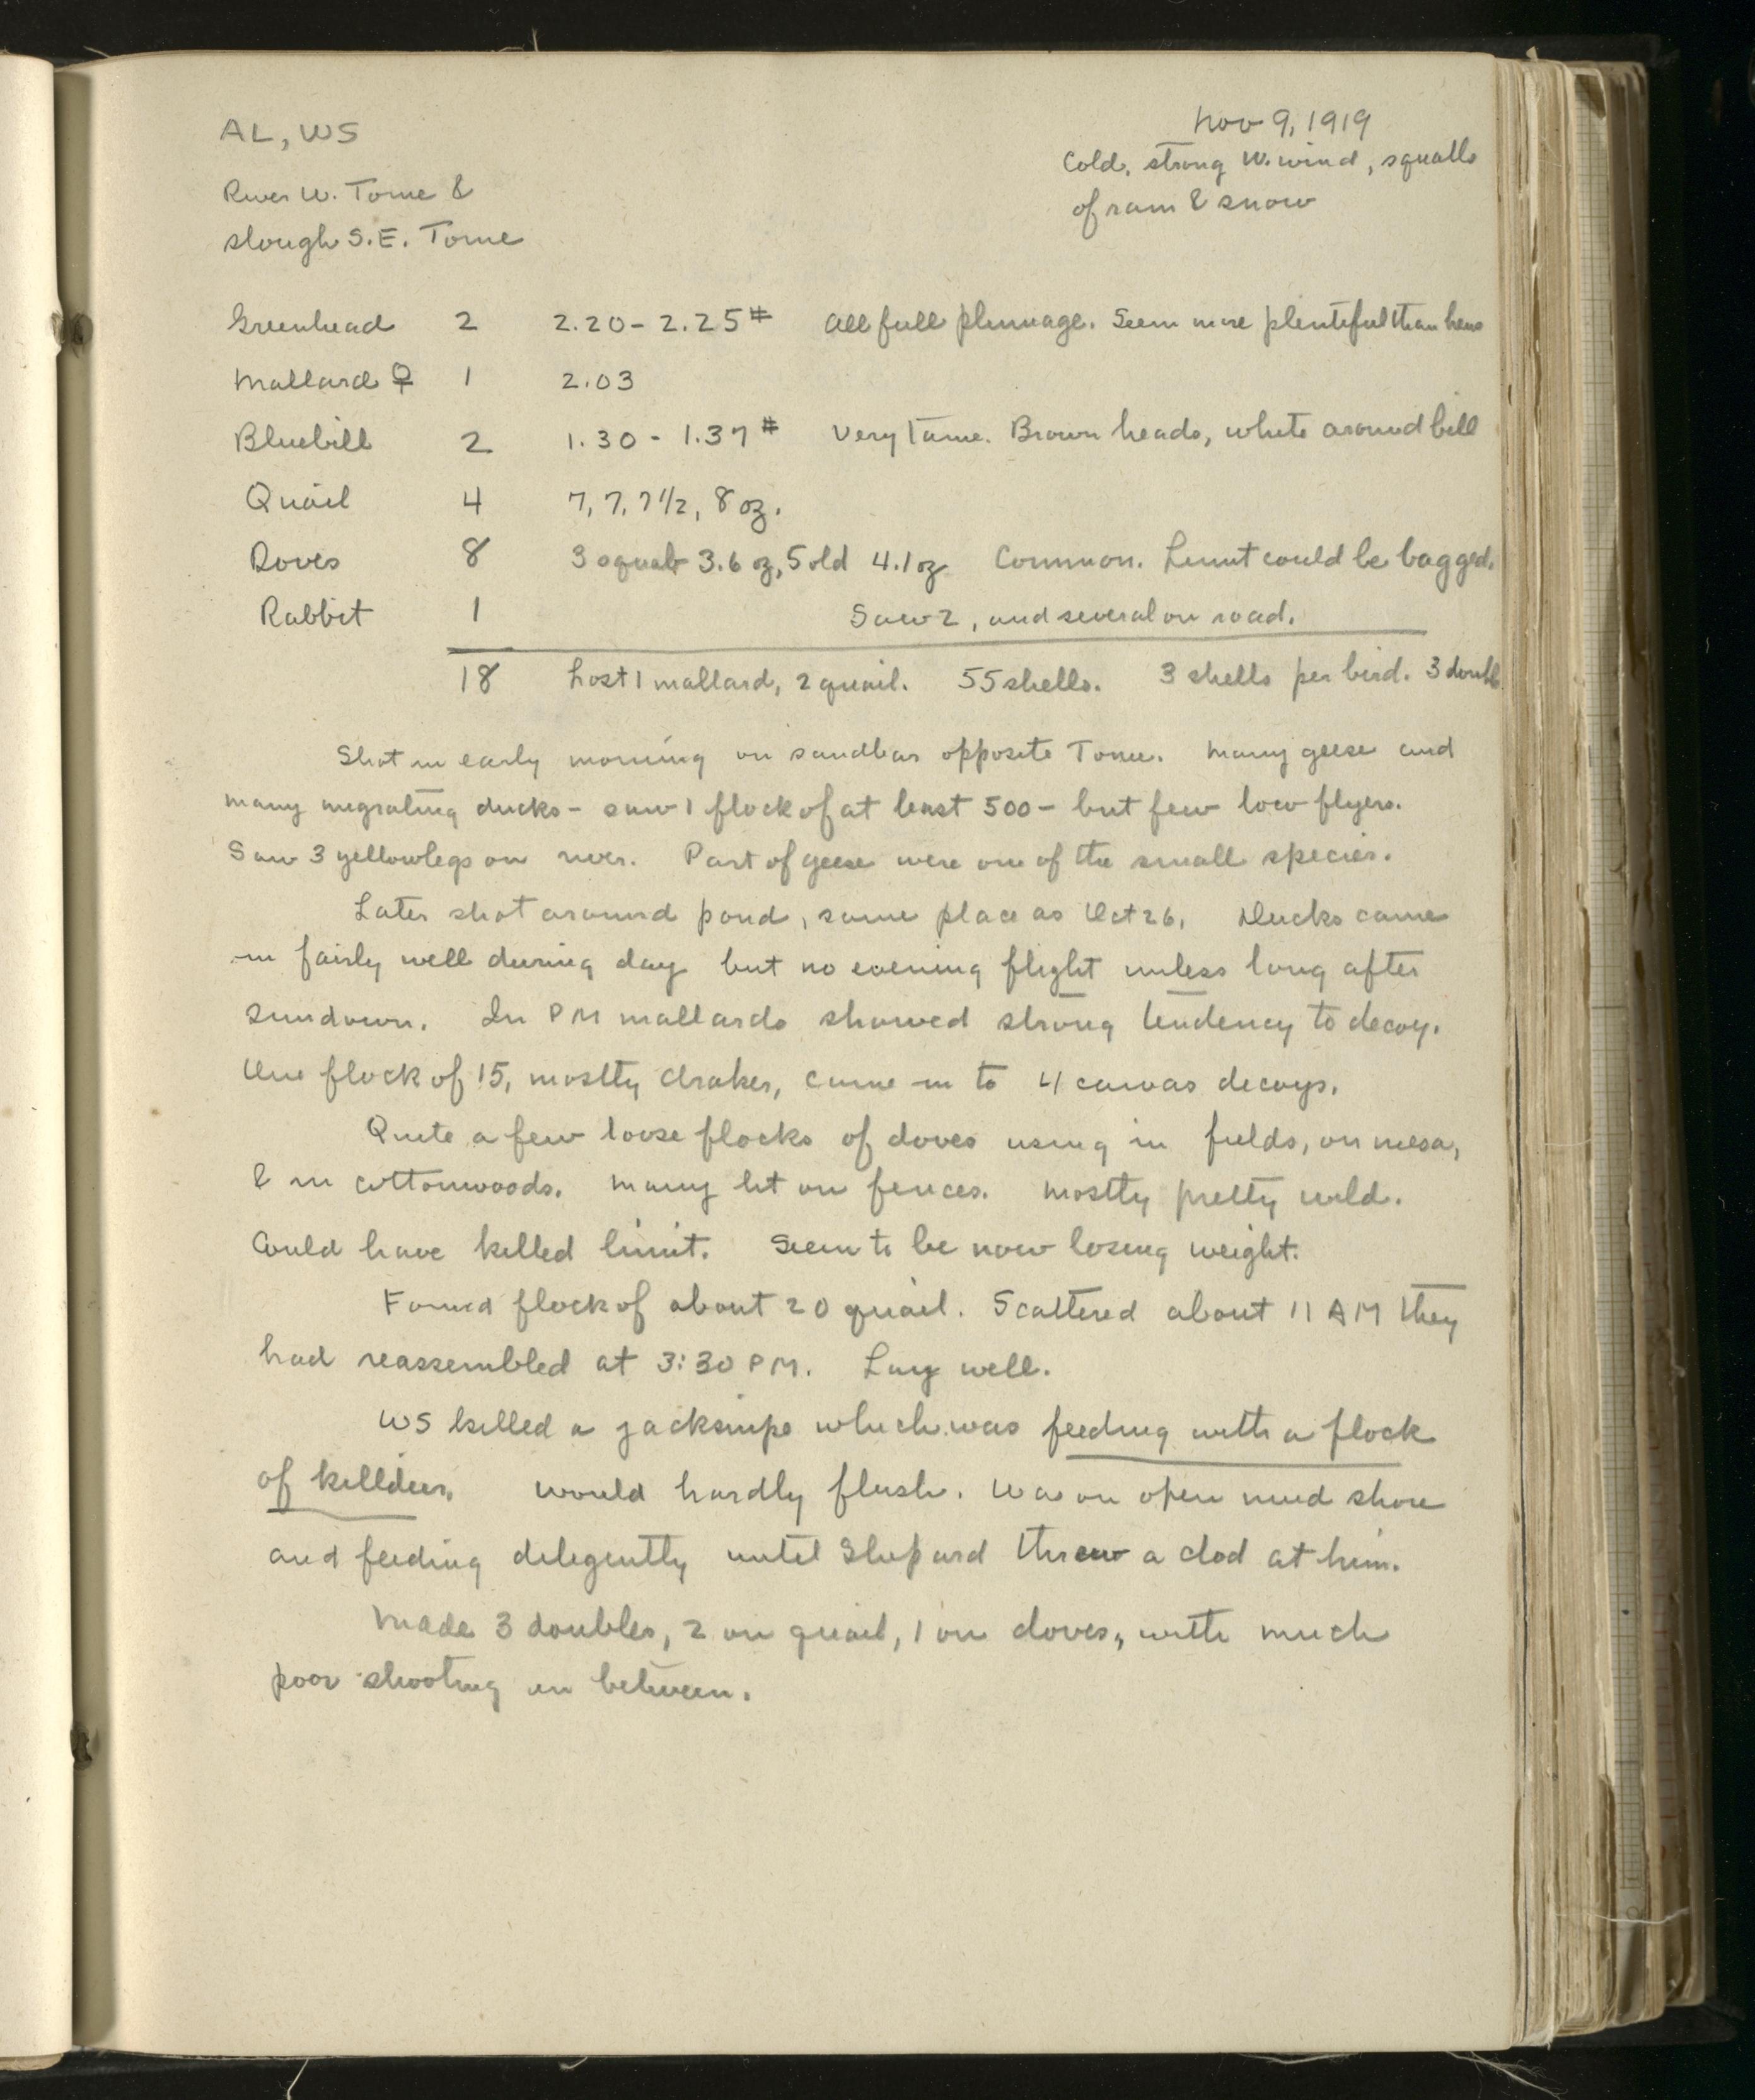 AL, WS
Nov 9, 1919
River W. Tome &
slough S.E. Tome
Cold, strong W. wind, squalls
of rain & snow
Greenhead 2 2.20 - 2.25# All full plumage. Seem more plentiful than hens
Mallard ♀ 1 2.03
Bluebill 2 1.30 - 1.37# Very Tame. Brown heads, white around bill
Quail 4 7, 7, 7 1/2, 8 oz.
Doves 8 3 squab 3.6 oz, 5 old 4.1 oz Common. Limit could be bagged.
Rabbit 1 Saw 2, and several on road.
18 Lost 1 mallard, 2 quail. 55 shells. 3 shells per bird. 3 doubles
Shot in early morning on sandbar opposite Tome. Many geese and
many migrating ducks - saw 1 flock of at least 500 - but few low flyers.
Saw 3 yellowlegs on river. Part of geese were one of the small species.
Later shot around pond, same place as Oct 26. Ducks came
in fairly well during day but no evening flight unless long after
sundown. In PM mallards showed strong tendency to decoy.
One flock of 15, mostly drakes, came in to 4 canvas decoys.
Quite a few loose flocks of doves using in fields, on mesa,
& in cottonwoods. Many lit on fences. Mostly pretty wild.
Could have killed limit. Seem to be now losing weight.
Found flock of about 20 quail. Scattered about 11 AM they
had reassembled at 3:30 PM. Lay well.
WS killed a jacksnipe which was feeding with a flock
of killdeer. Would hardly flush. Was on open mud shore
and feeding delegently until Shepard threw a clod at him.
Made 3 doubles, 2 on quail, 1 on doves, with much
poor shooting in between.